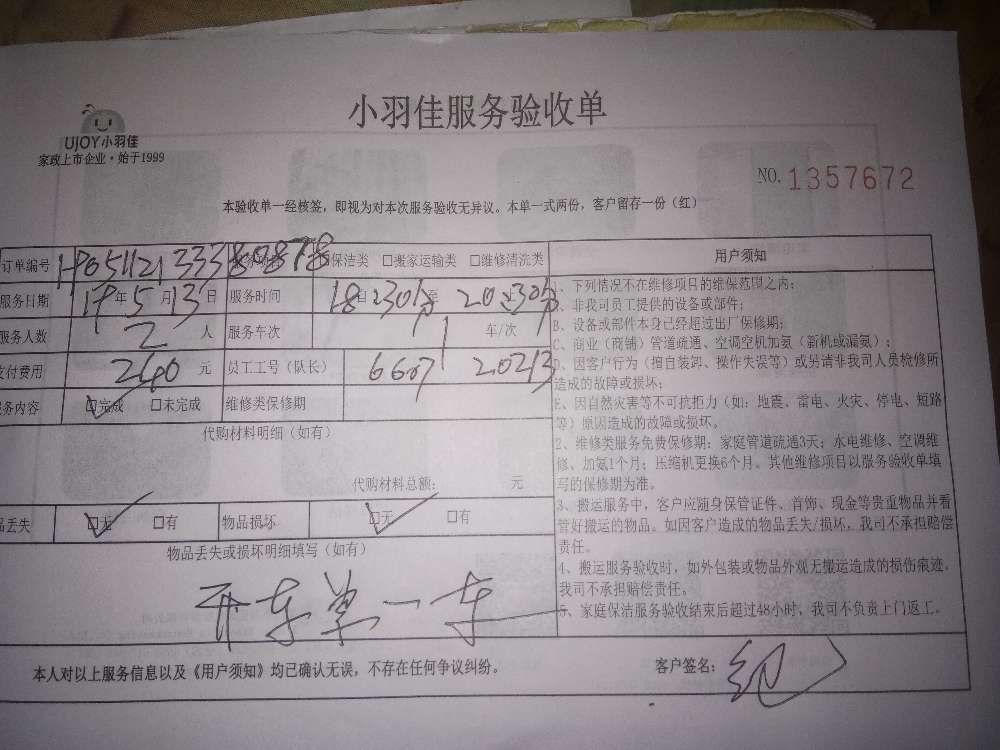 小羽佳服务验收单
UJOY小羽佳
家政上市企业·始于1999
NO. 1357672
本验收单一经核签，即视为对本次服务验收无异议。本单一式两份，客户留存一份（红）
订单编号 保洁类 □搬家运输类 □维修清洗类
服务日期 19年5月13日 服务时间 18:30 至 20:30
服务人数 2 人 服务车次 车/次
支付费用 240 元 员工工号（队长） 6607 20213
服务内容 □完成 □未完成 维修类保修期
代购材料明细（如有）
代购材料总额： 元
品丢失 □无 □有 物品损坏 □无 □有
物品丢失或损坏明细填写（如有）
开车单一车
用户须知
、下列情况不在维修项目的维保范围之内：
、非我司员工提供的设备或部件；
B、设备或部件本身已经超过出厂保修期；
C、商业（商铺）管道疏通、空调空机加氨（新机或漏氨）；
D、因客户行为（擅自装卸、操作失误等）或另请非我司人员检修所
造成的故障或损坏；
E、因自然灾害等不可抗拒力（如：地震、雷电、火灾、停电、短路
等）原因造成的故障或损坏。
2、维修类服务免费保修期：家庭管道疏通3天；水电维修、空调维
修、加氨1个月；压缩机更换6个月。其他维修项目以服务验收单填
写的保修期为准。
3、搬运服务中，客户应随身保管证件、首饰、现金等贵重物品并看
管好搬运的物品。如因客户造成的物品丢失/损坏，我司不承担赔偿
责任。
4、搬运服务验收时，如外包装或物品外观无搬运造成的损伤痕迹，
我司不承担赔偿责任。
5、家庭保洁服务验收结束后超过48小时，我司不负责上门返工。
本人对以上服务信息以及《用户须知》均已确认无误，不存在任何争议纠纷。 客户签名：